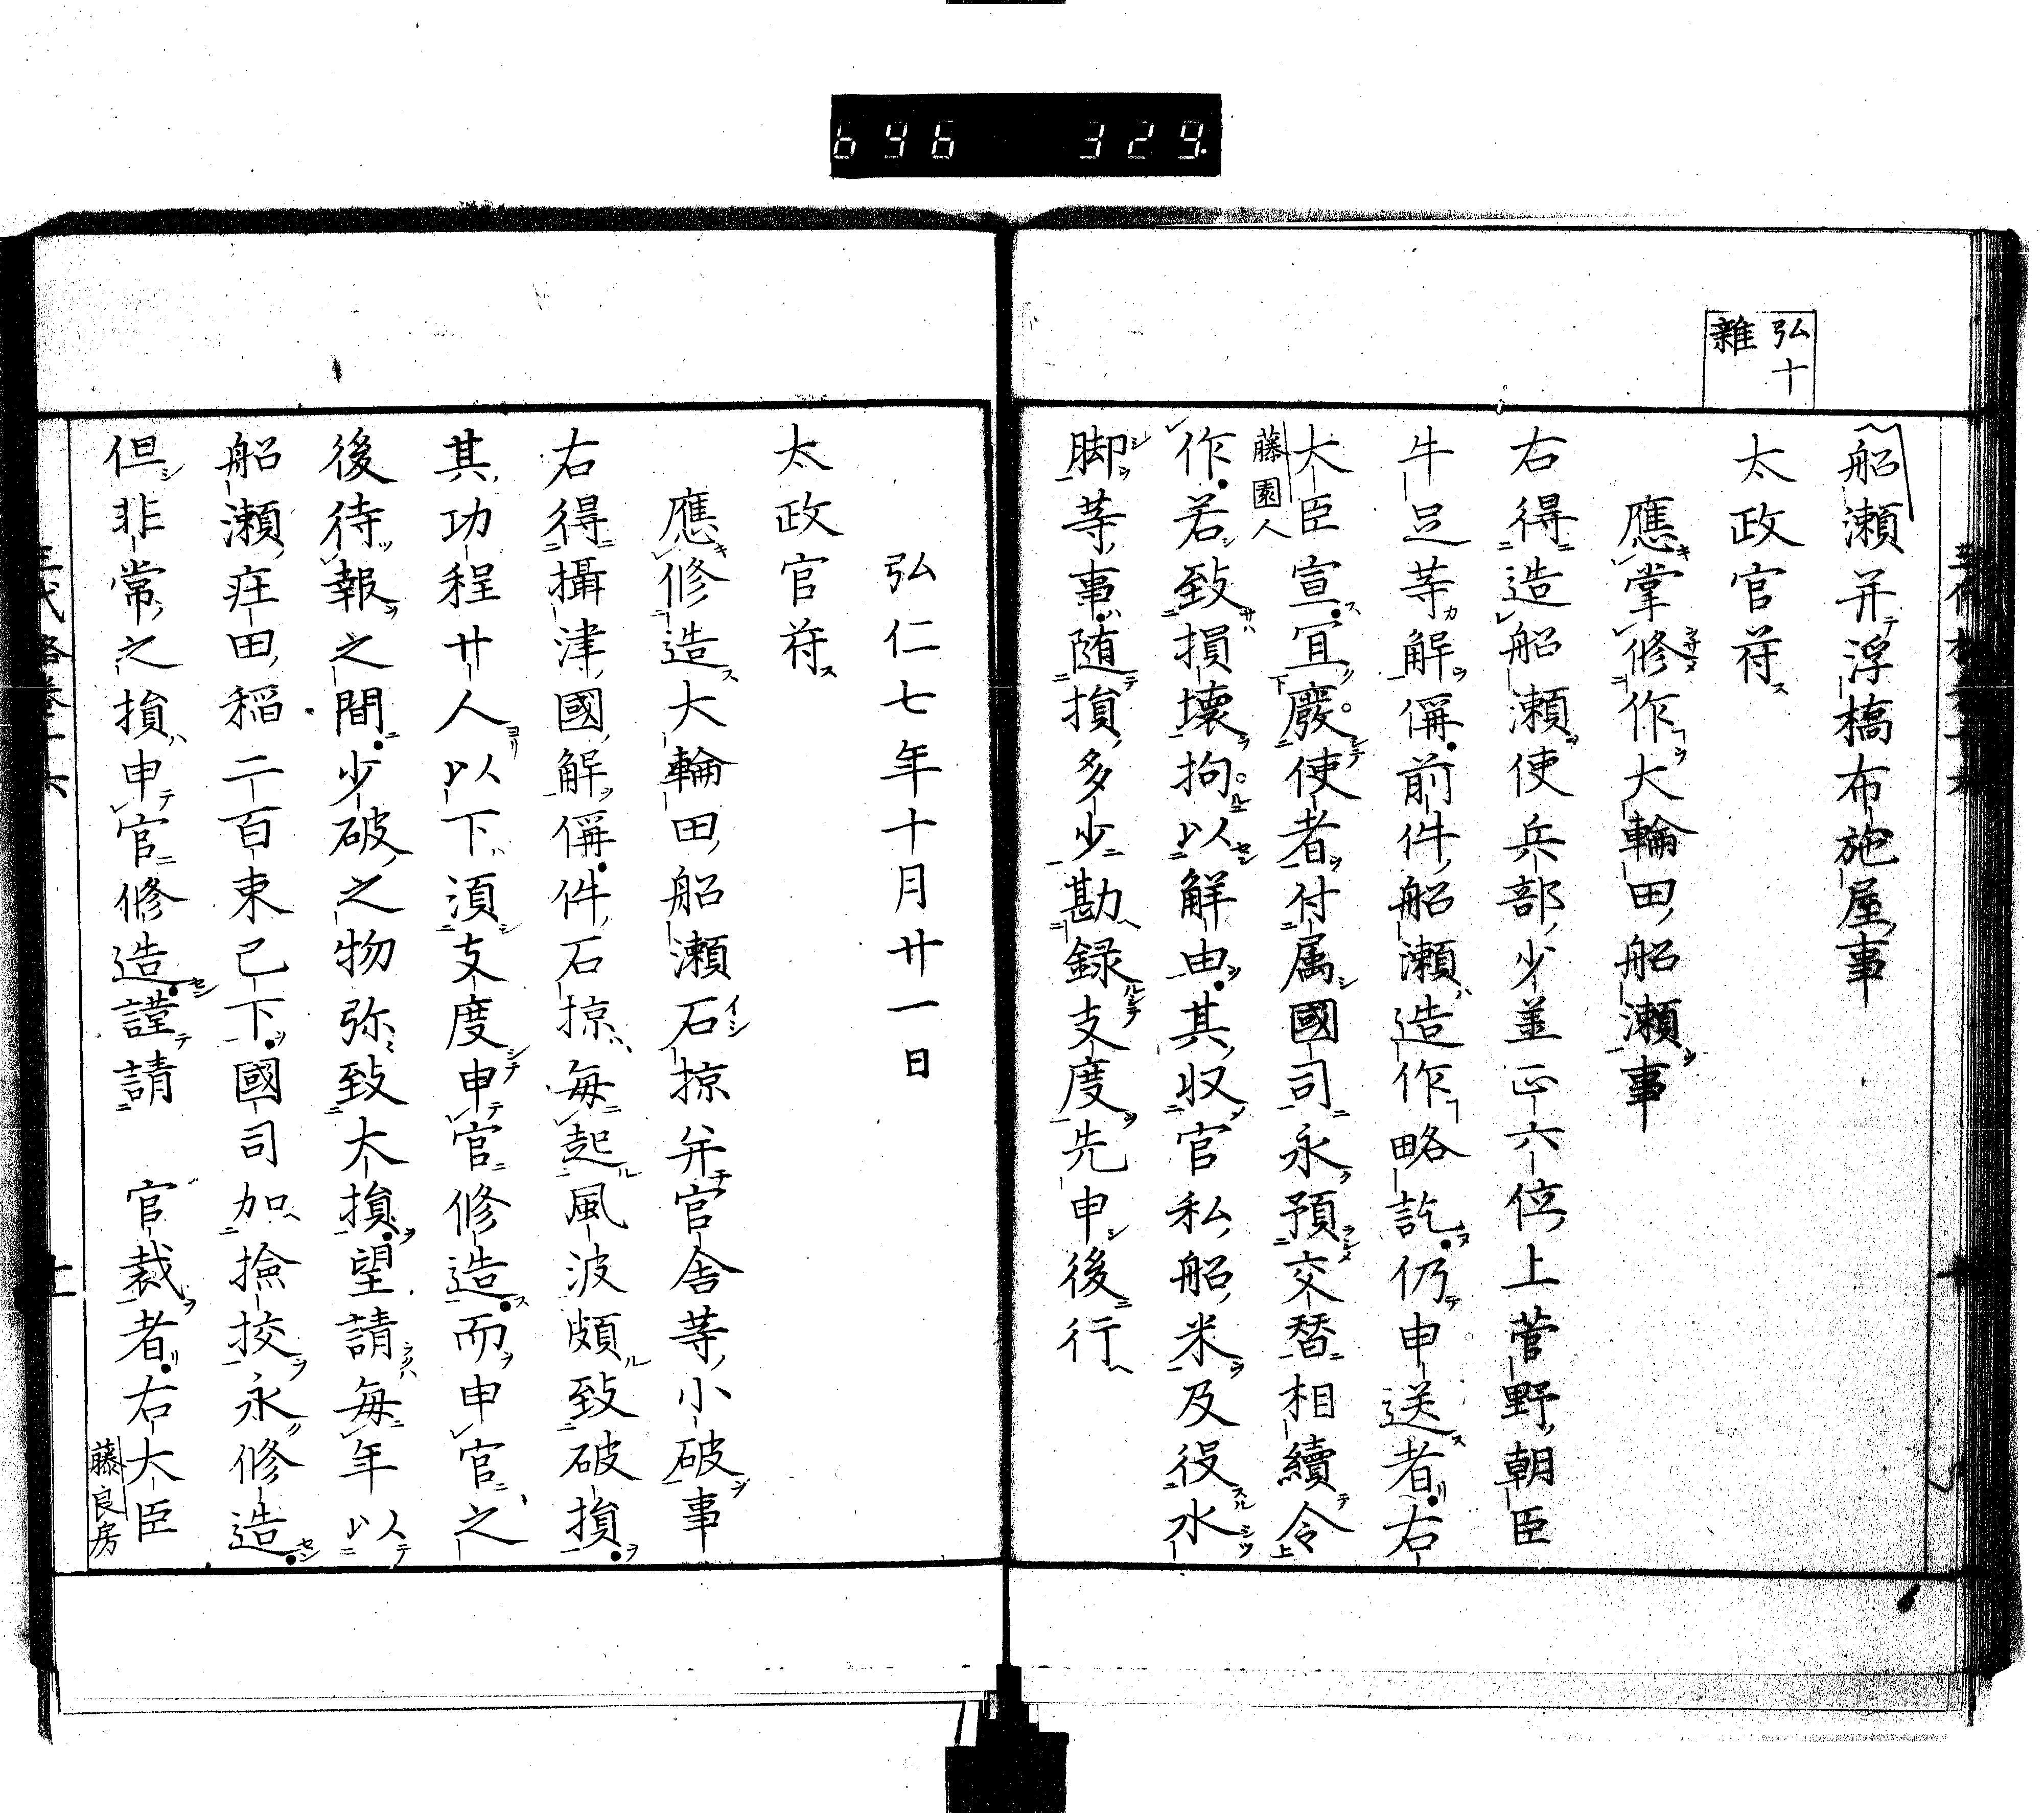 696 329
弘十
雜
船瀬并浮橋布施屋事
太政官苻
應掌修作大輪田船瀬事
右得造船瀬使兵部少並正六位上菅野朝臣
牛足等解偁前件船瀬造作略訖仍申送者右
大臣宣宜廢使者付属國司永預交替相續令
藤園人
作若致損壞拘以解由其収官私船米及役水
脚等事随損多少勘録支度先申後行
弘仁七年十月廿一日
太政官苻
應修造大輪田船瀬石掠并官舎等小破事
右得攝津國解偁件石掠毎起風波頗致破損
其功程廿人以下湏支度申官修造而申官之
後待報之間少破之物弥致大損望請毎年以
船瀬庄田稲二百束已下國司加撿挍永修造
但非常之損申官修造謹請 官裁者右大臣
藤良房